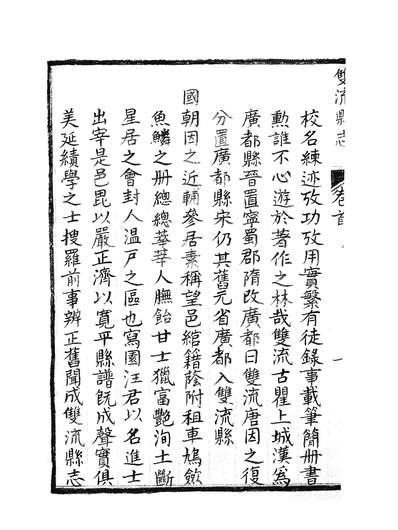 雙流縣志 卷首 一
校名練迹攷功攷用實繁有徒錄事載筆簡冊書
勲誰不心遊於著作之林哉雙流古瞿上城漢爲
廣都縣晉置寧蜀郡隋改廣都曰雙流唐因之復
分置廣都縣宋仍其舊元省廣都入雙流縣
國朝因之近輔參居素稱望邑綰籍蔭附租車鳩歛
魚鱗之册總總莘莘人膴飴甘士獵富艷洵土斷
星居之會封人温戸之區也寫園汪君以名進士
出宰是邑毘以嚴正濟以寬平縣譜旣成聲實俱
美延績學之士搜羅前事辨正舊聞成雙流縣志